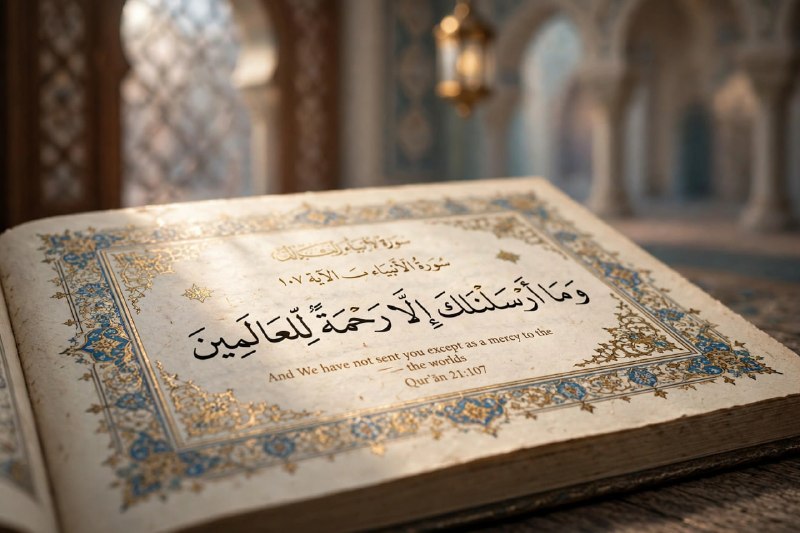 سورة
سُورَةُ الْأَنْبِيَاء الآية ١٠٧
وَمَا أَرْسَلْنَلكَ إِلَّا رَحْمَةً لِّلعَالَمِينَ
And We have not sent you except as a mercy to the
the worlds
Qur'ān 21:107